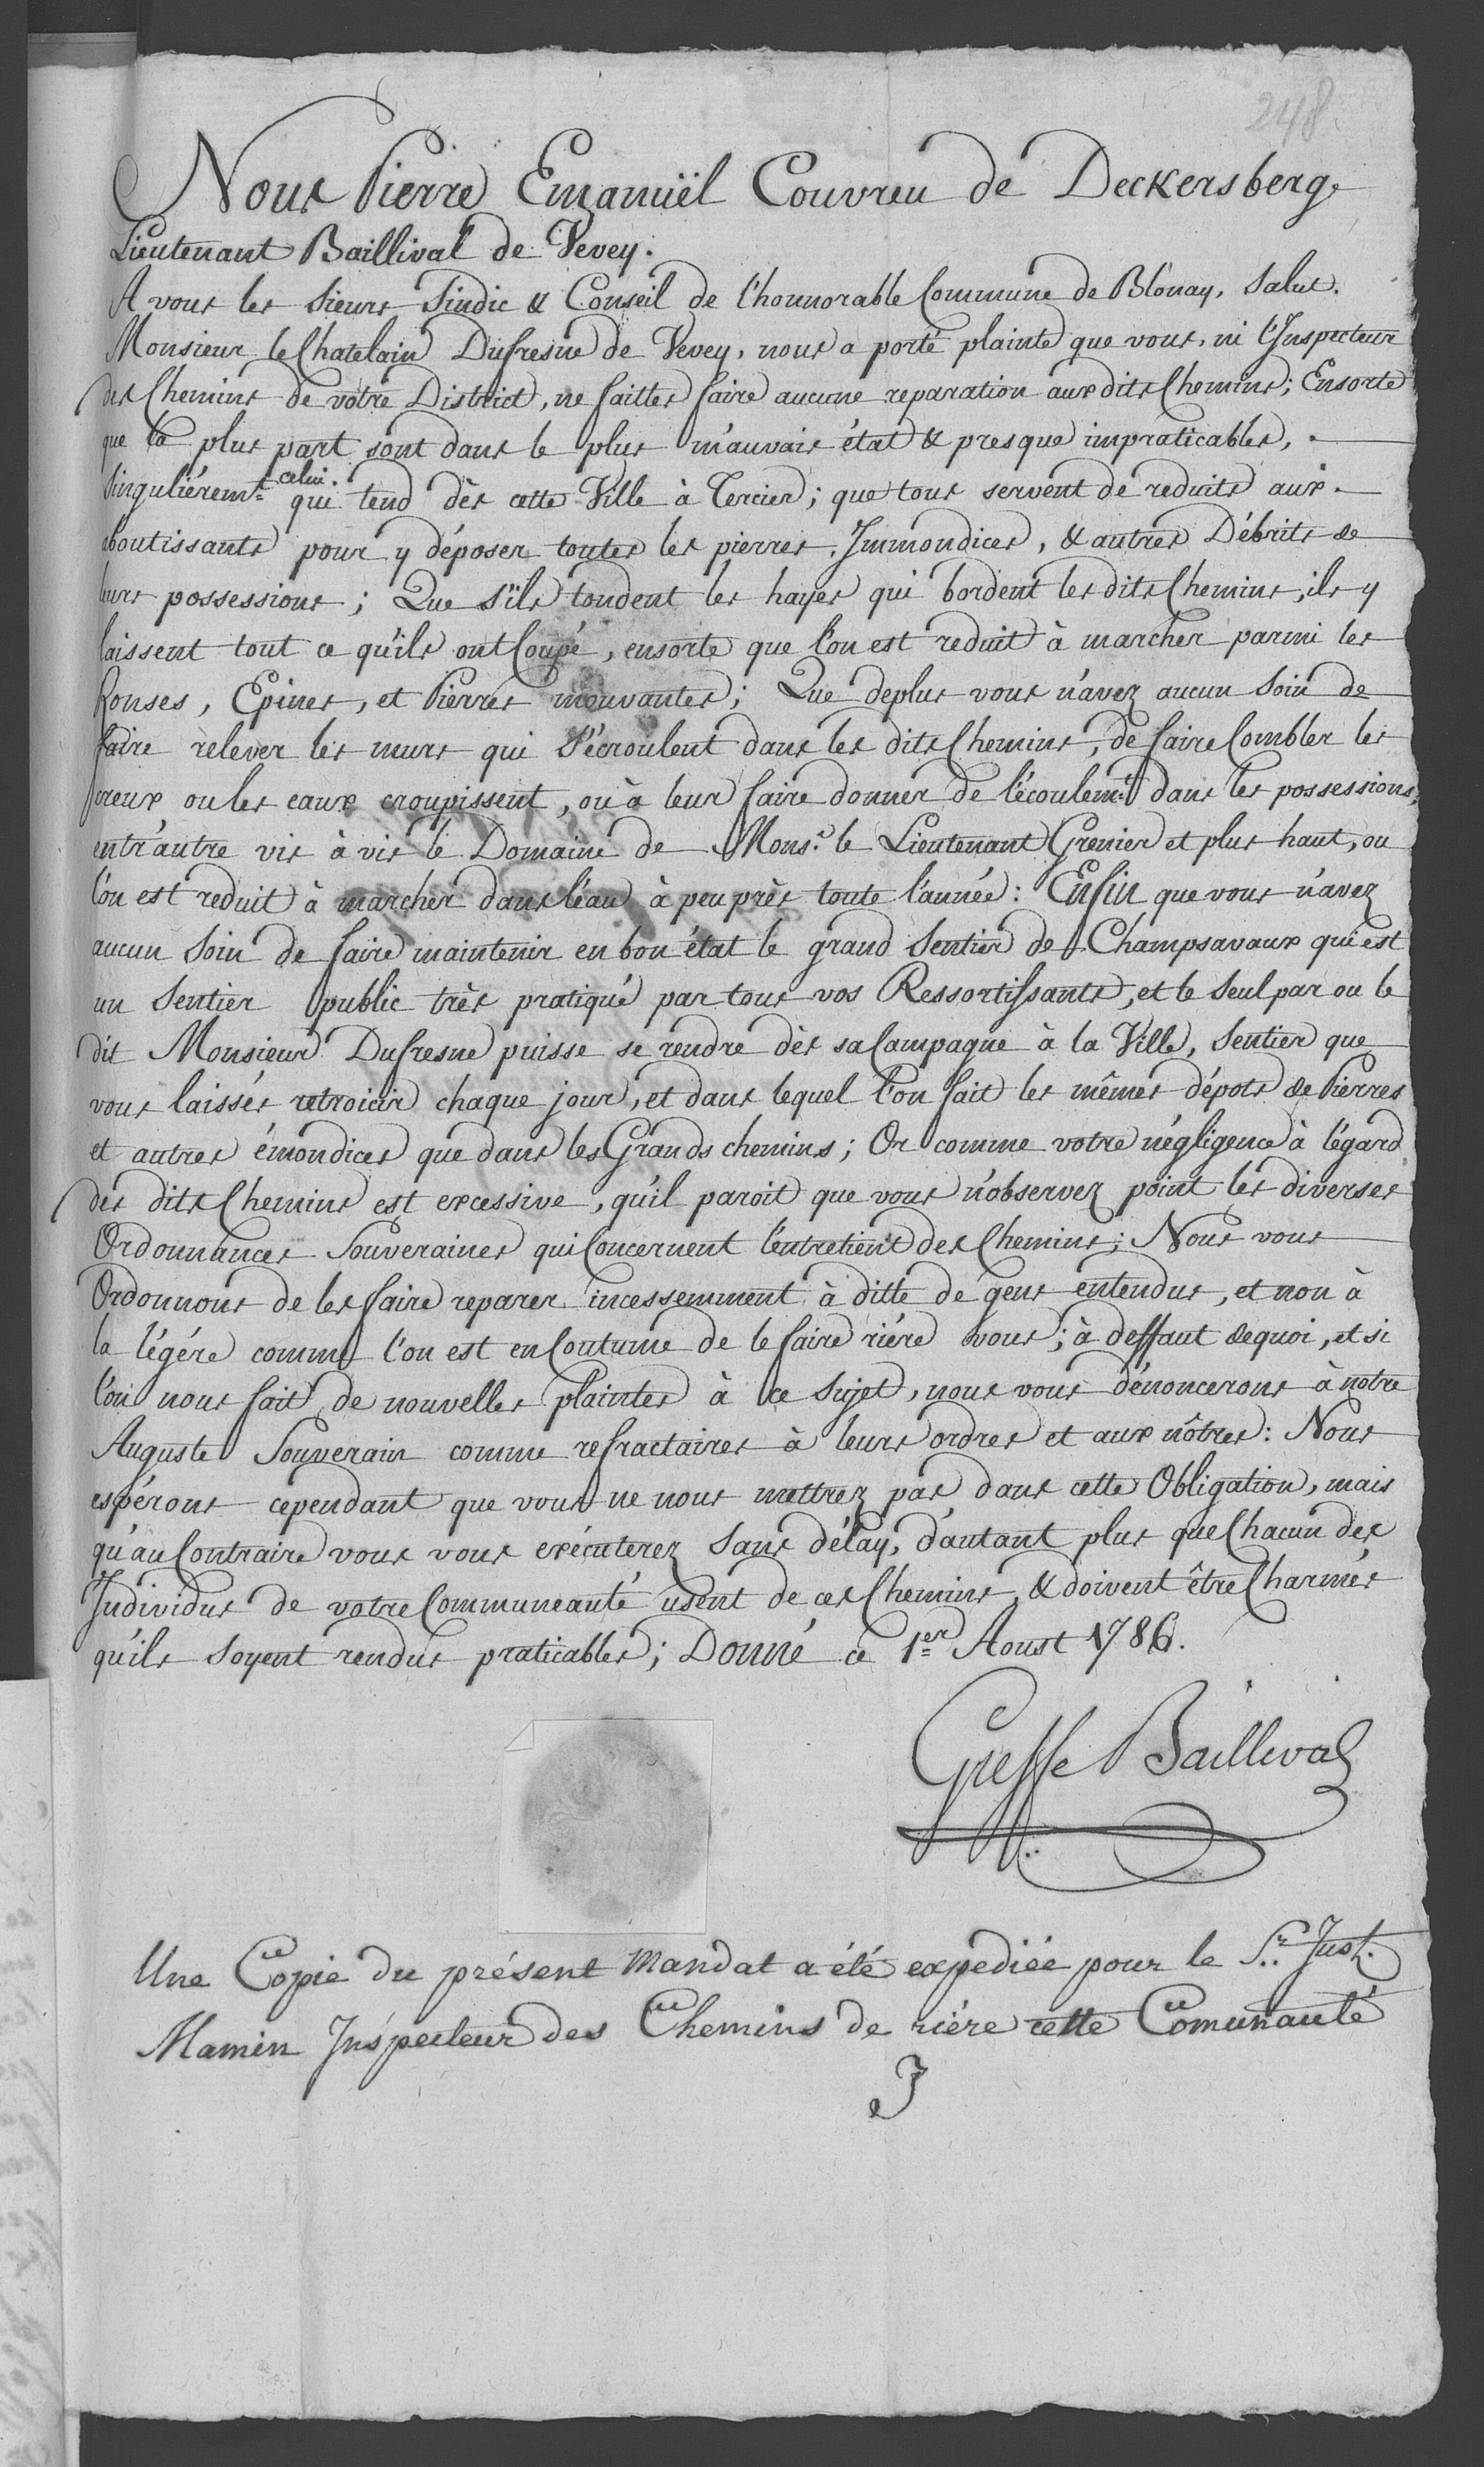 248.
Nous Pierre Emanuël Couvreu de Deckersberg,
Lieutenant Baillival de Vevey.
A vous les Sieurs Sindic & Conseil de l'honnorable Commune de Blonay, Salut.
Monsieur le Chatelain Dufresne de Vevey, nous a porté plainte que vous, ni l'Inspecteur
des Chemins de vôtre District, ne faittes faire aucune reparation aux dits Chemins; Ensorte
que la plus part sont dans le plus mauvais état & presque impraticables,
singuliéremt. celui qui tend dès cette Ville à Tercier; que tous servent de reduits aux
aboutissants pour y déposer toutes les pierres, Immondices, & autres Débrits de
leurs possessions; Que s'ils tondent les hayes qui bordent les dits Chemins, ils y
laissent tout ce qu'ils ont Coupé, ensorte que l'on est reduit à marcher parmi les
Ronses, Epines, et Pierres mouvantes; Que deplus vous n'avez aucun Soin de
faire relever les murs qui s'écroulent dans les dits Chemins, de faire Combler les
creux ou les eaux croupissent, ou à leur faire donner de l'écoulemt. dans les possessions,
entr'autre vis à vis le Domaine de Monsr. le Lieutenant Grenier et plus haut, ou
l'on est reduit à marcher dans l'eau à peu près toute l'année: Enfin que vous n'avez
aucun Soin de faire maintenir en bon état le grand Sentier de Champsavaux qui est
un Sentier public très pratiqué par tous vos Ressortissants, et le Seul par ou le
dit Monsieur Dufresne puisse se rendre dès sa Campagne à la Ville, Sentier que
vous laissés retroicir chaque jour, et dans lequel l'on fait les mêmes dépots de Pierres
et autres émondices que dans les Grands chemins; Or comme votre négligence à l'égard
des dits Chemins est excessive, qu'il paroit que vous n'observez point les diverses
Ordonnances Souveraines qui Concernent l'entretient des Chemins; Nous vous
Ordonnons de les faire reparer incessemment à ditte de gens entendus, et non à
la légére comme l'on est en Coutume de le faire riére vous; à deffaut dequoi, et si
l'on nous fait de nouvelles plaintes à ce Sujet, nous vous dénoncerons à notre
Auguste Souverain comme refractaires à leurs ordres et aux nôtres: Nous
espérons cependant que vous ne nous mettrez pas dans cette Obligation, mais
qu'au Contraire vous vous exécuterez Sans délay, d'autant plus que Chacun des
Individus de votre Communeauté usent de ces Chemins, & doivent être Charmés
qu'ils soyent rendus praticables; Donné ce 1er Aoust 1786.
Greffe Baillival
Une Copie du présent mandat a été expediée pour le Sr. Just.
Mamin Inspecteur des Chemins de riére cette Comunauté